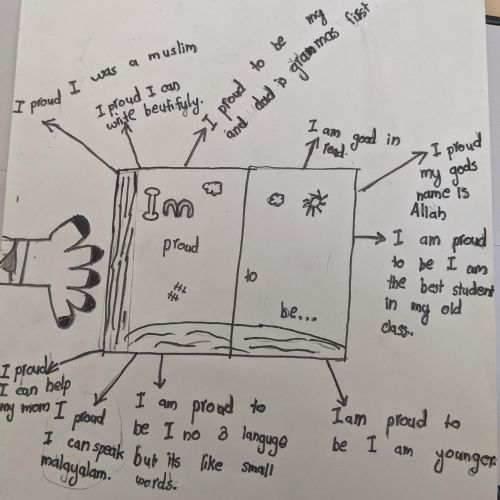 I proud I was a muslim
I proud I can
write beutifyly.
I proud to be my
and dad is grammas first
I am good in
read.
I proud
my gods
name is
Allah
I am proud
to be I am
the best student
in my old
class.
Im
proud
to
be...
I proud
I can help
my mom
I proud
I can speak
malayalam.
I am proud to
be I no 3 languge
but its like small
words.
I am proud to
be I am younger.